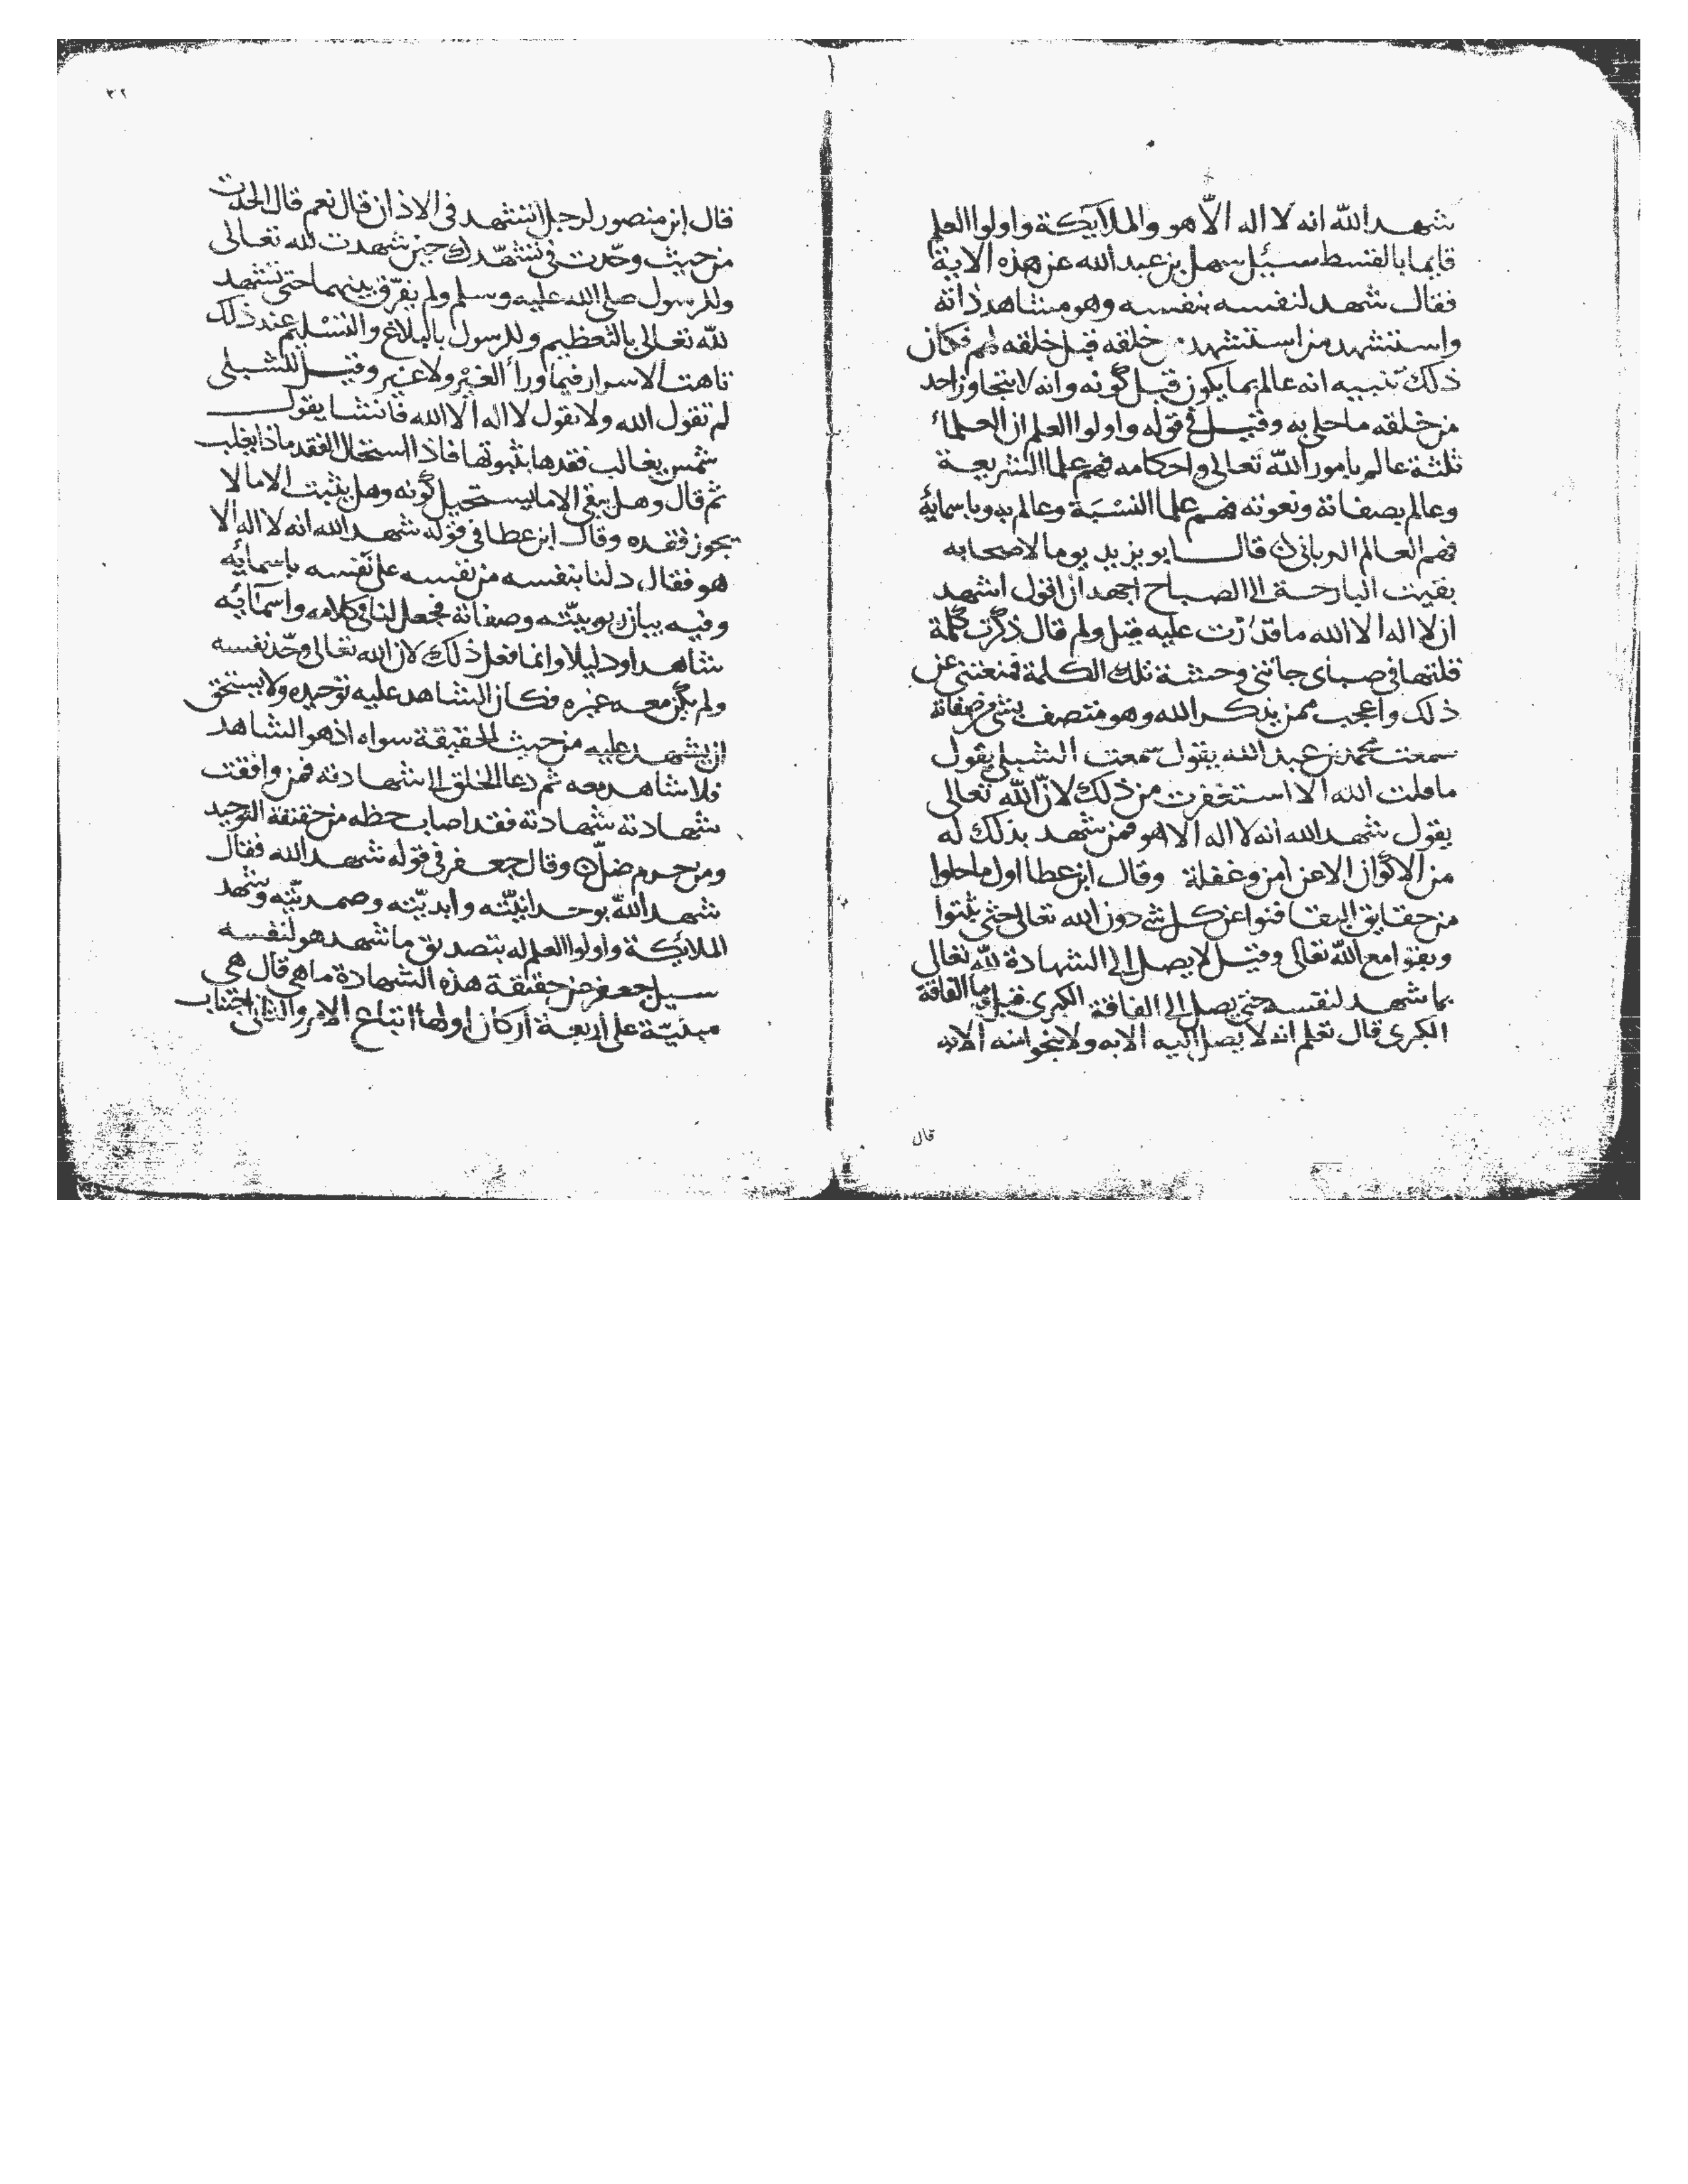 شهد الله انه لا اله الّا هو والملآيكة واولوا العلم
قايما بالقسط سـيُل سهل بن عبد الله عن هذه الاية
فقال شهد لنفسه بنفسه وهو مشاهد ذاته
واستشهد من استشهد من خلقه قبل خلقه لهم فكان
ذلك تنبيه انه عالم بما يكون قبل كونه وانه لا يتجاوز احد
من خلقه ما حلى به وقيل في قوله واولوا العلم ان العلماء
ثلثة عالم بامور الله تعالى واحكامه فهم علما الشريعة
وعالم بصفاته ونعوته فهم علما النسْبَة وعالم به وباسمائه
فهم العالم الربانى قال ابو يزيد يوما لاصحابه
بقيت البارحة الى الصباح اجهد ان اقول اشهد
ان لا اله الا الله ما قدرت عليه قيل ولم قال ذكرت كلمة
قلتها في صباى جاتنى وحشة تلك الكلمة فمنعتنى عن
ذلك واعجب ممن يذكر الله وهو متصف بشى من صفاته
سمعت محمد بن عبد الله يقول سمعت الشبلي يقول
ما قلت الله الا استغفرت من ذلك لانّ الله تعالى
يقول شهد الله انه لا اله الا هو فمن شهد بذلك له
من الاكوان الا عن امن وغفلة وقال ابن عطا اول ما حلوا
من حقايق البقا فنوا عن كل شى دون الله تعالى حتى ثبتوا
وبقوا مع الله تعالى وقيل لا يصل الى الشهادة لله تعالى
بما شهد لنفسه حتى يصل الى الفاقة الكبرى فقيل ما الفاقة
الكبرى قال تعلم انه لا يصل اليه الا به ولا ينجوا منه الا به
قال
٣٢
قال ابن منصور لرجل اتشهد في الاذان قال نعم قال الحدت
من حيث وحّدت في تشهّدك حين شهدت لله تعالى
وللرسول صلى الله عليه وسلم ولم يفرّق بينهما حتى تشهد
للّه تعالى بالتعظيم وللرسول بالبلاغ والتسْليم عند ذلك
تاهت الاسرار فيما ورأ الغيْر ولا غير وقيل للشبلى
لم تقول الله ولا تقول لا اله الا الله فانشا يقول
شمس يغالب فقدها بثبوتها فاذا استحال الفقد ماذا يغلب
ثم قال وهل يبقى الا ما يستحيل كونه وهل يثبت الا ما لا
يجوز فقده وقال ابن عطا في قوله شهد الله انه لا اله الا
هو فقال دلنا بنفسه من نفسه على نفسه باسمايه
وفيه بيان ربوبيّته وصفاته فجعل لنا في كلامه واسمآئه
شاهدا ودليلا وانما فعل ذلك لان الله تعالى وحّد نفسه
ولم يكن معه غيره فكان الشاهد عليه توحيده ولا يستحق
ان يشهد عليه من حيث الحقيقة سواه اذ هو الشاهد
فلا شاهد معه ثم دعا الخلق الى شهادته فمن وافقت
شهادته شهادته فقد اصاب حظه من حقيقة التوحيد
ومن حرم ضلّ وقال جعفر في قوله شهد الله فقال
شهد اللّه بوحدانيّته وابديّته وصمديّته وشهد
الملائكة واولوا العلم له بتصديق ما شهد هو لنفسه
سيل جعفر عن حقيقة هذه الشهادة ما هي قال هي
مبنيّة على اربعة اركان اولها اتباع الامر والثانى اجتناب